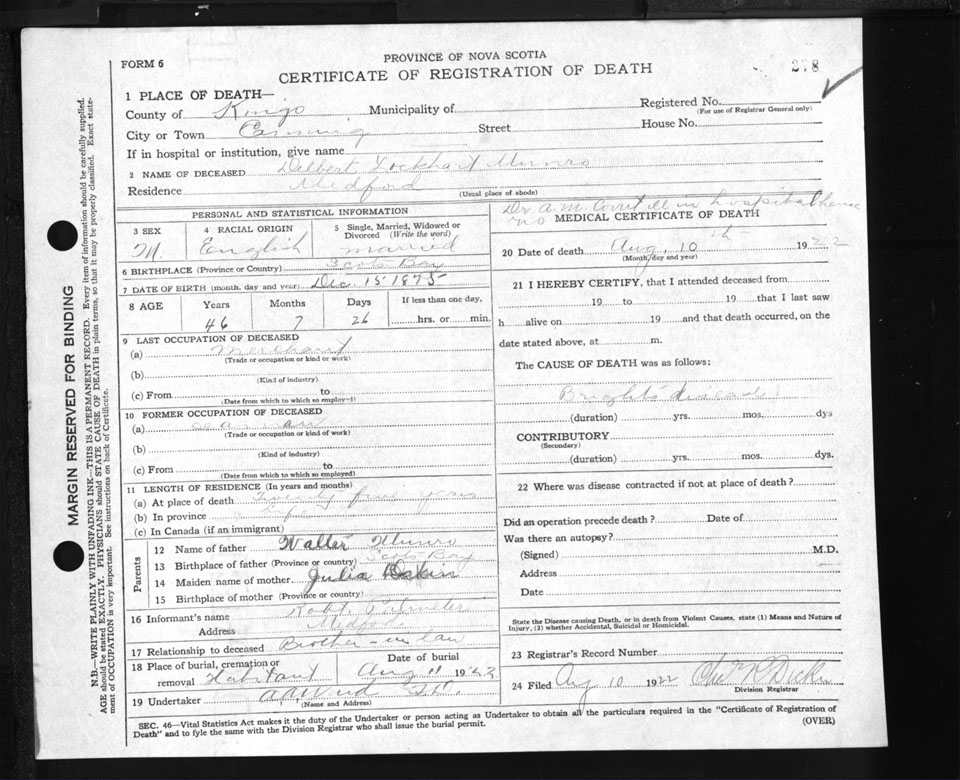 FORM 6
PROVINCE OF NOVA SCOTIA
CERTIFICATE OF REGISTRATION OF DEATH
278
1 PLACE OF DEATH—
County of Kings Municipality of Registered No.
(For use of Registrar General only)
City or Town Canning Street House No.
If in hospital or institution, give name
2 NAME OF DECEASED Delbert Lockhart Munro
Residence Medford
(Usual place of abode)
PERSONAL AND STATISTICAL INFORMATION
3 SEX M. 4 RACIAL ORIGIN English 5 Single, Married, Widowed or Divorced (Write the word) married
6 BIRTHPLACE (Province or Country) Scots Bay
7 DATE OF BIRTH (month, day and year) Dec. 15 1875
8 AGE Years Months Days If less than one day,
46 7 26 hrs. or min.
9 LAST OCCUPATION OF DECEASED
(a) Merchant
(Trade or occupation or kind of work)
(b)
(Kind of industry)
(c) From to
(Date from which to which so employed)
10 FORMER OCCUPATION OF DECEASED
(a)
(Trade or occupation or kind of work)
(b)
(Kind of industry)
(c) From to
(Date from which to which so employed)
11 LENGTH OF RESIDENCE (In years and months)
(a) At place of death Twenty years
(b) In province Life
(c) In Canada (if an immigrant)
Parents
12 Name of father Walter Munro
13 Birthplace of father (Province or country) Scots Bay
14 Maiden name of mother Julia
15 Birthplace of mother (Province or country)
16 Informant's name Robt.
Address Medford
17 Relationship to deceased Brother-in law
18 Place of burial, cremation or removal Habitant Date of burial Aug 11 1922
19 Undertaker
(Name and Address)
Dr. A. M. in hospital hence no
MEDICAL CERTIFICATE OF DEATH
20 Date of death Aug. 10th 1922
(Month, day and year)
21 I HEREBY CERTIFY, that I attended deceased from
19 to 19 that I last saw
h alive on 19 and that death occurred, on the
date stated above, at m.
The CAUSE OF DEATH was as follows:
Brights disease
(duration) yrs. mos. dys
CONTRIBUTORY
(Secondary)
(duration) yrs. mos. dys.
22 Where was disease contracted if not at place of death?
Did an operation precede death? Date of
Was there an autopsy?
(Signed) M.D.
Address
Date
State the Disease causing Death, or in death from Violent Causes, state (1) Means and Nature of
Injury, (2) whether Accidental, Suicidal or Homicidal.
23 Registrar's Record Number
24 Filed Aug 10 1922
Division Registrar
SEC. 46—Vital Statistics Act makes it the duty of the Undertaker or person acting as Undertaker to obtain all the particulars required in the "Certificate of Registration of
Death" and to fyle the same with the Division Registrar who shall issue the burial permit.
(OVER)
MARGIN RESERVED FOR BINDING
N.B.—WRITE PLAINLY WITH UNFADING INK—THIS IS A PERMANENT RECORD. Every item of information should be carefully supplied.
AGE should be stated EXACTLY. PHYSICIANS should STATE CAUSE OF DEATH in plain terms, so that it may be properly classified. Exact state-
ment of OCCUPATION is very important. See instructions on back of Certificate.